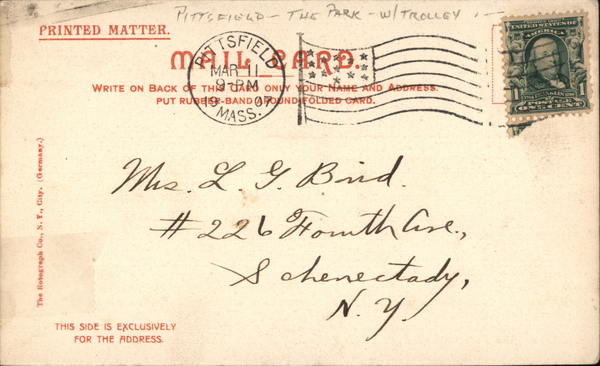 PITTSFIELD - THE PARK - W/TROLLEY
PRINTED MATTER.
MAIL CARD.
WRITE ON BACK OF THIS CARD ONLY YOUR NAME AND ADDRESS.
PUT RUBBER-BAND AROUND FOLDED CARD.
PITTSFIELD
MAR 11
9-PM
1907
MASS.
UNITED STATES OF
AMERICA
1
POSTAGE
ONE CENT
1
Mrs. L. G. Bird.
#226 Fourth Ave.,
Schenectady,
N.Y.
The Rotograph Co., N. Y., City. (Germany.)
THIS SIDE IS EXCLUSIVELY
FOR THE ADDRESS.